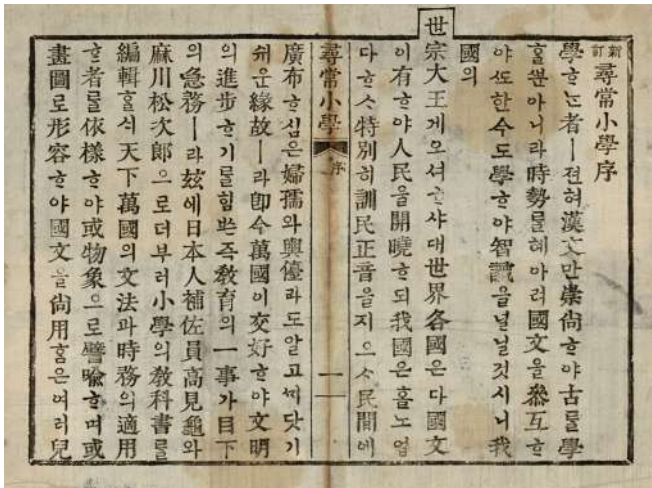 新訂 尋常小學序
學ᄒᆞᄂᆞᆫ者ㅣ젼혀漢文만崇尙ᄒᆞ야古ᄅᆞᆯ學
ᄒᆞᆯᄲᅮᆫ아니라時勢ᄅᆞᆯ혜아려國文을參互ᄒᆞ
야ᄯᅩ한今도學ᄒᆞ야智識을널닐것시니我
國의
世宗大王게오셔ᄒᆞ샤대世界各國은다國文
이有ᄒᆞ야人民을開曉ᄒᆞ되我國은홀노업
다ᄒᆞᄉᆞ特別히訓民正音을지으ᄉᆞ民間에
尋常小學 序 一
廣布ᄒᆞ심은婦孺와輿儓라도알고ᄭᆡ닷기
쉬운緣故ㅣ라卽今萬國이交好ᄒᆞ야文明
의進步ᄒᆞ기ᄅᆞᆯ힘ᄡᅳᆫ즉敎育의一事가目下
의急務ㅣ라玆에日本人補佐員高見龜와
麻川松次郞으로더부러小學의敎科書ᄅᆞᆯ
編輯ᄒᆞᆯᄉᆡ天下萬國의文法과時務의適用
ᄒᆞᆫ者ᄅᆞᆯ依樣ᄒᆞ야或物象으로譬喩ᄒᆞ며或
畫圖로形容ᄒᆞ야國文을尙用홈은여러兒